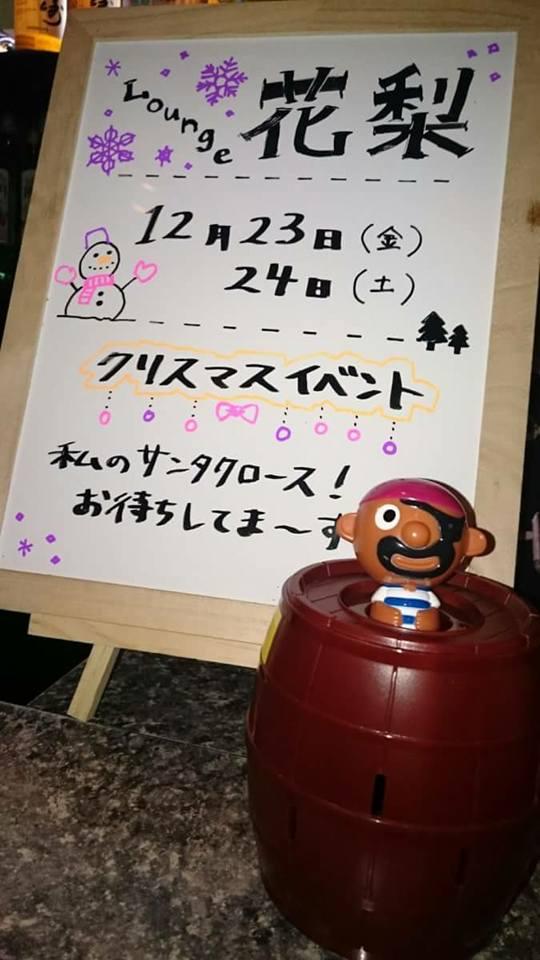 Lounge 花梨
12月23日(金)
24日(土)
クリスマスイベント
私のサンタクロース!
お待ちしてま〜す